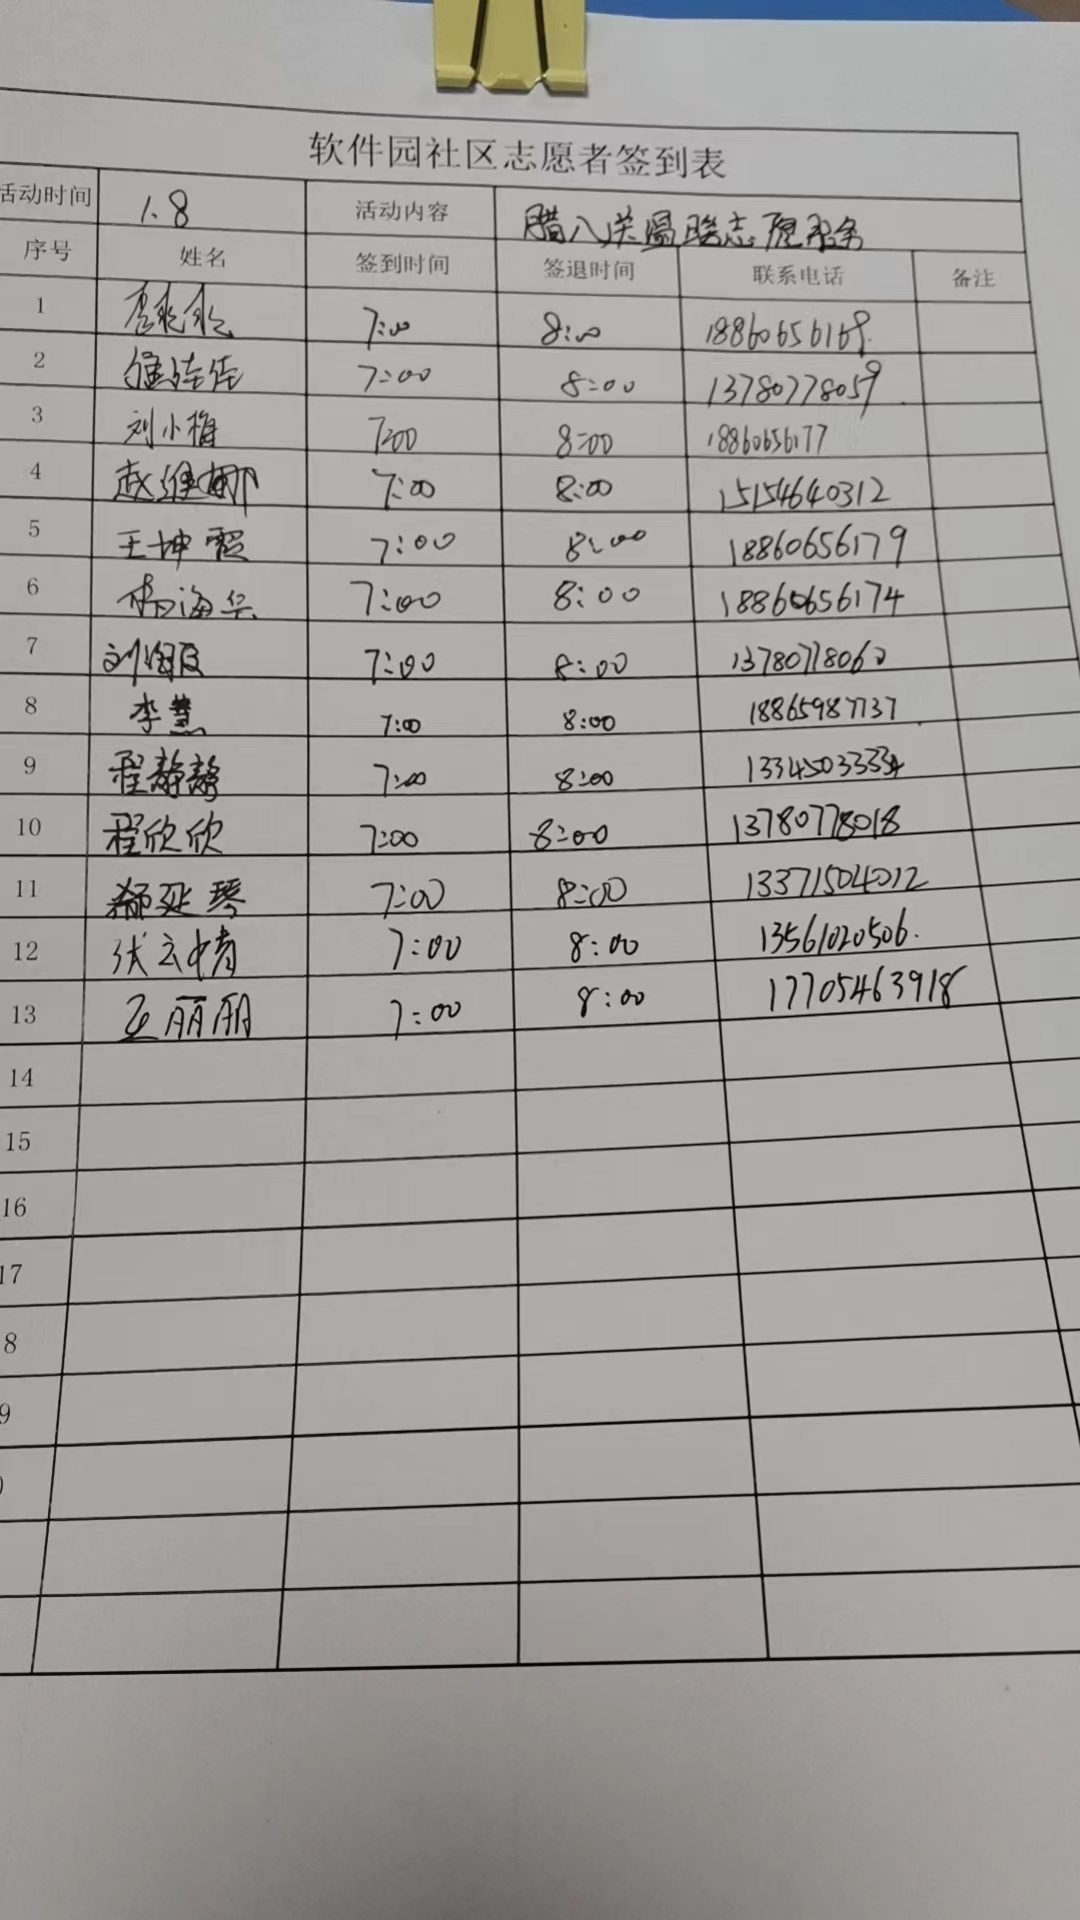 软件园社区志愿者签到表
活动时间 1.8 活动内容 腊八 志愿服务
序号 姓名 签到时间 签退时间 联系电话 备注
1 7:00 8:00 18860656169
2 佳佳 7:00 8:00 13780778059
3 刘小梅 7:00 8:00 18860656177
4 赵维娜 7:00 8:00 15154640312
5 王坤霞 7:00 8:00 18860656179
6 杨海华 7:00 8:00 18860656174
7 刘 7:00 8:00 13780778060
8 李慧 7:00 8:00 18865987737
9 程静静 7:00 8:00
10 程欣欣 7:00 8:00 13780778018
11 郝延琴 7:00 8:00 13371504012
12 张云情 7:00 8:00 13561020506.
13 王丽丽 7:00 8:00 17705463918
14
15
16
17
8
9